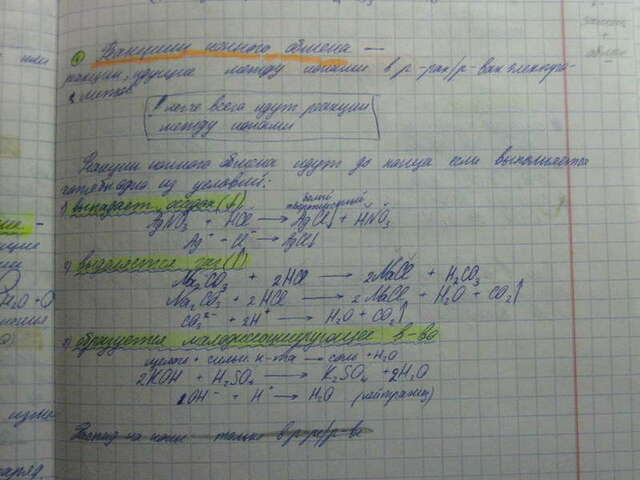 Реакции ионного обмена —
реакции, идущие между ионами в р-рах/р-вах электро-
литов
! легче всего идут реакции
между ионами
Реакции ионного обмена идут до конца если выполняется
хотя бы одно из условий:
1) выпадает осадок (↓)
белый творожистый
AgNO₃ + HCl → AgCl↓ + HNO₃
Ag⁺ Cl⁻ → AgCl↓
2) выделяется газ (↑)
Na₂CO₃ + 2HCl → 2NaCl + H₂CO₃
Na₂CO₃ + 2HCl → 2NaCl + H₂O + CO₂↑
CO₃²⁻ + 2H⁺ → H₂O + CO₂↑
3) образуется малодиссоциирующее в-во
щелочь + сильн. к-та → соль + H₂O
2KOH + H₂SO₄ → K₂SO₄ + 2H₂O
OH⁻ + H⁺ → H₂O (нейтрализ)
на ионы только в р-ре/р-ве